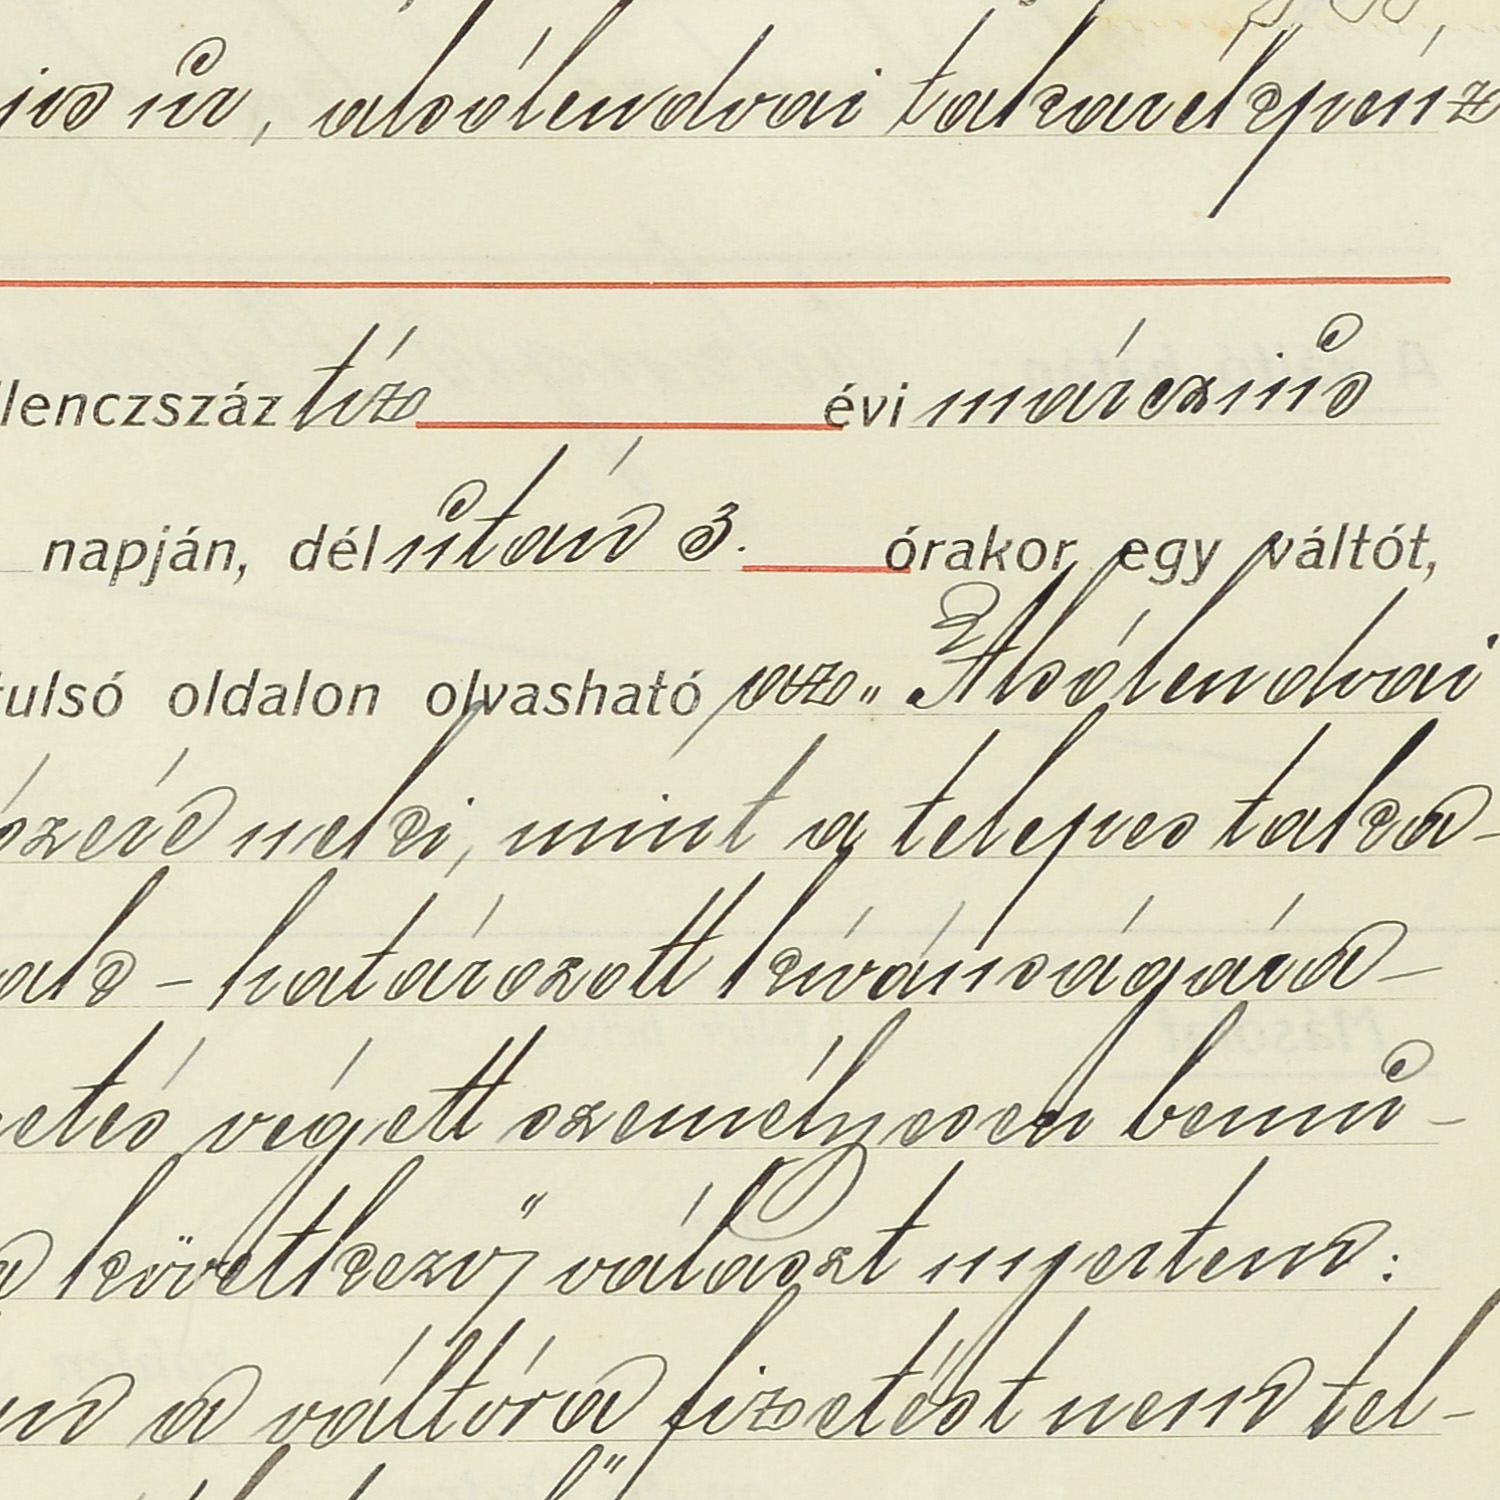 jos úr, alsólendvai takarékpénz
lenczszáz tíz évi márczius
napján, dél után 3. órakor egy váltót,
tulsó oldalon olvasható az „Alsólendvai
szénél neki, mint a telepes taka-
nak - határozott kívánságára -
zetés végett személyesen bemu-
a következő választ nyertem:
a váltóra fizetést nem tel-